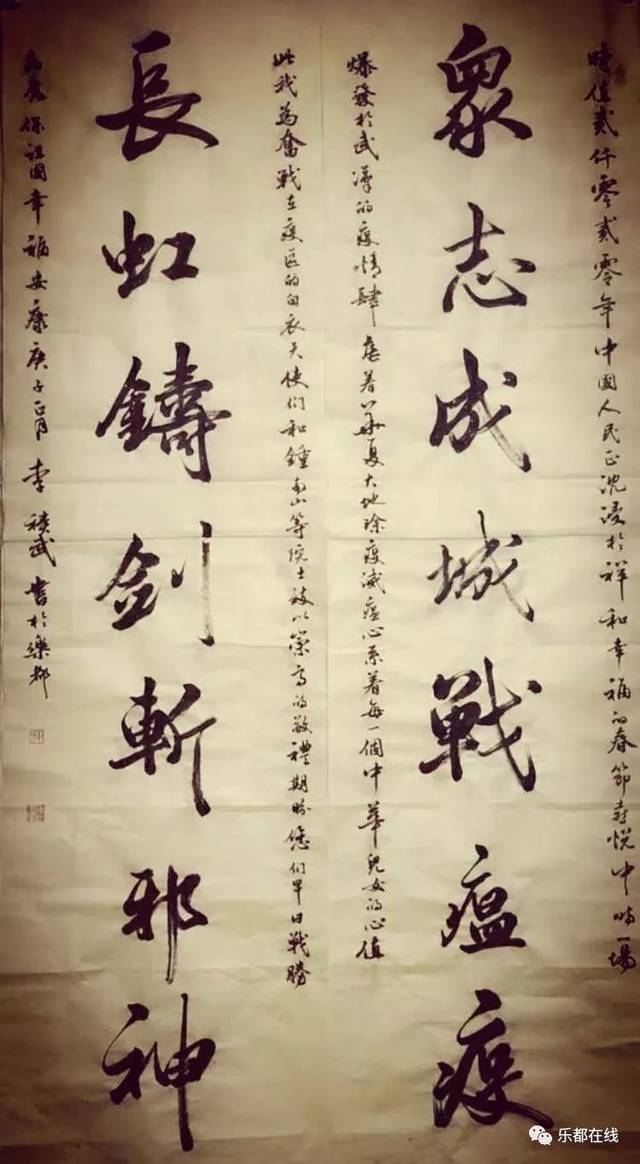 時值貳仟零貳零年中國人民正沈浸於祥和幸福的春節喜悅中時一場
眾志成城戰瘟疫
爆發於武漢的疫情肆虐着華夏大地除疫滅瘟心系着每一個中華兒女的心值
此我為奮戰在疫區的白衣天使們和鍾南山等院士致以崇高的敬禮期盼您們早日戰勝
長虹鑄劍斬邪神
保祖國幸福安康庚子正月李積武書於樂都
乐都在线